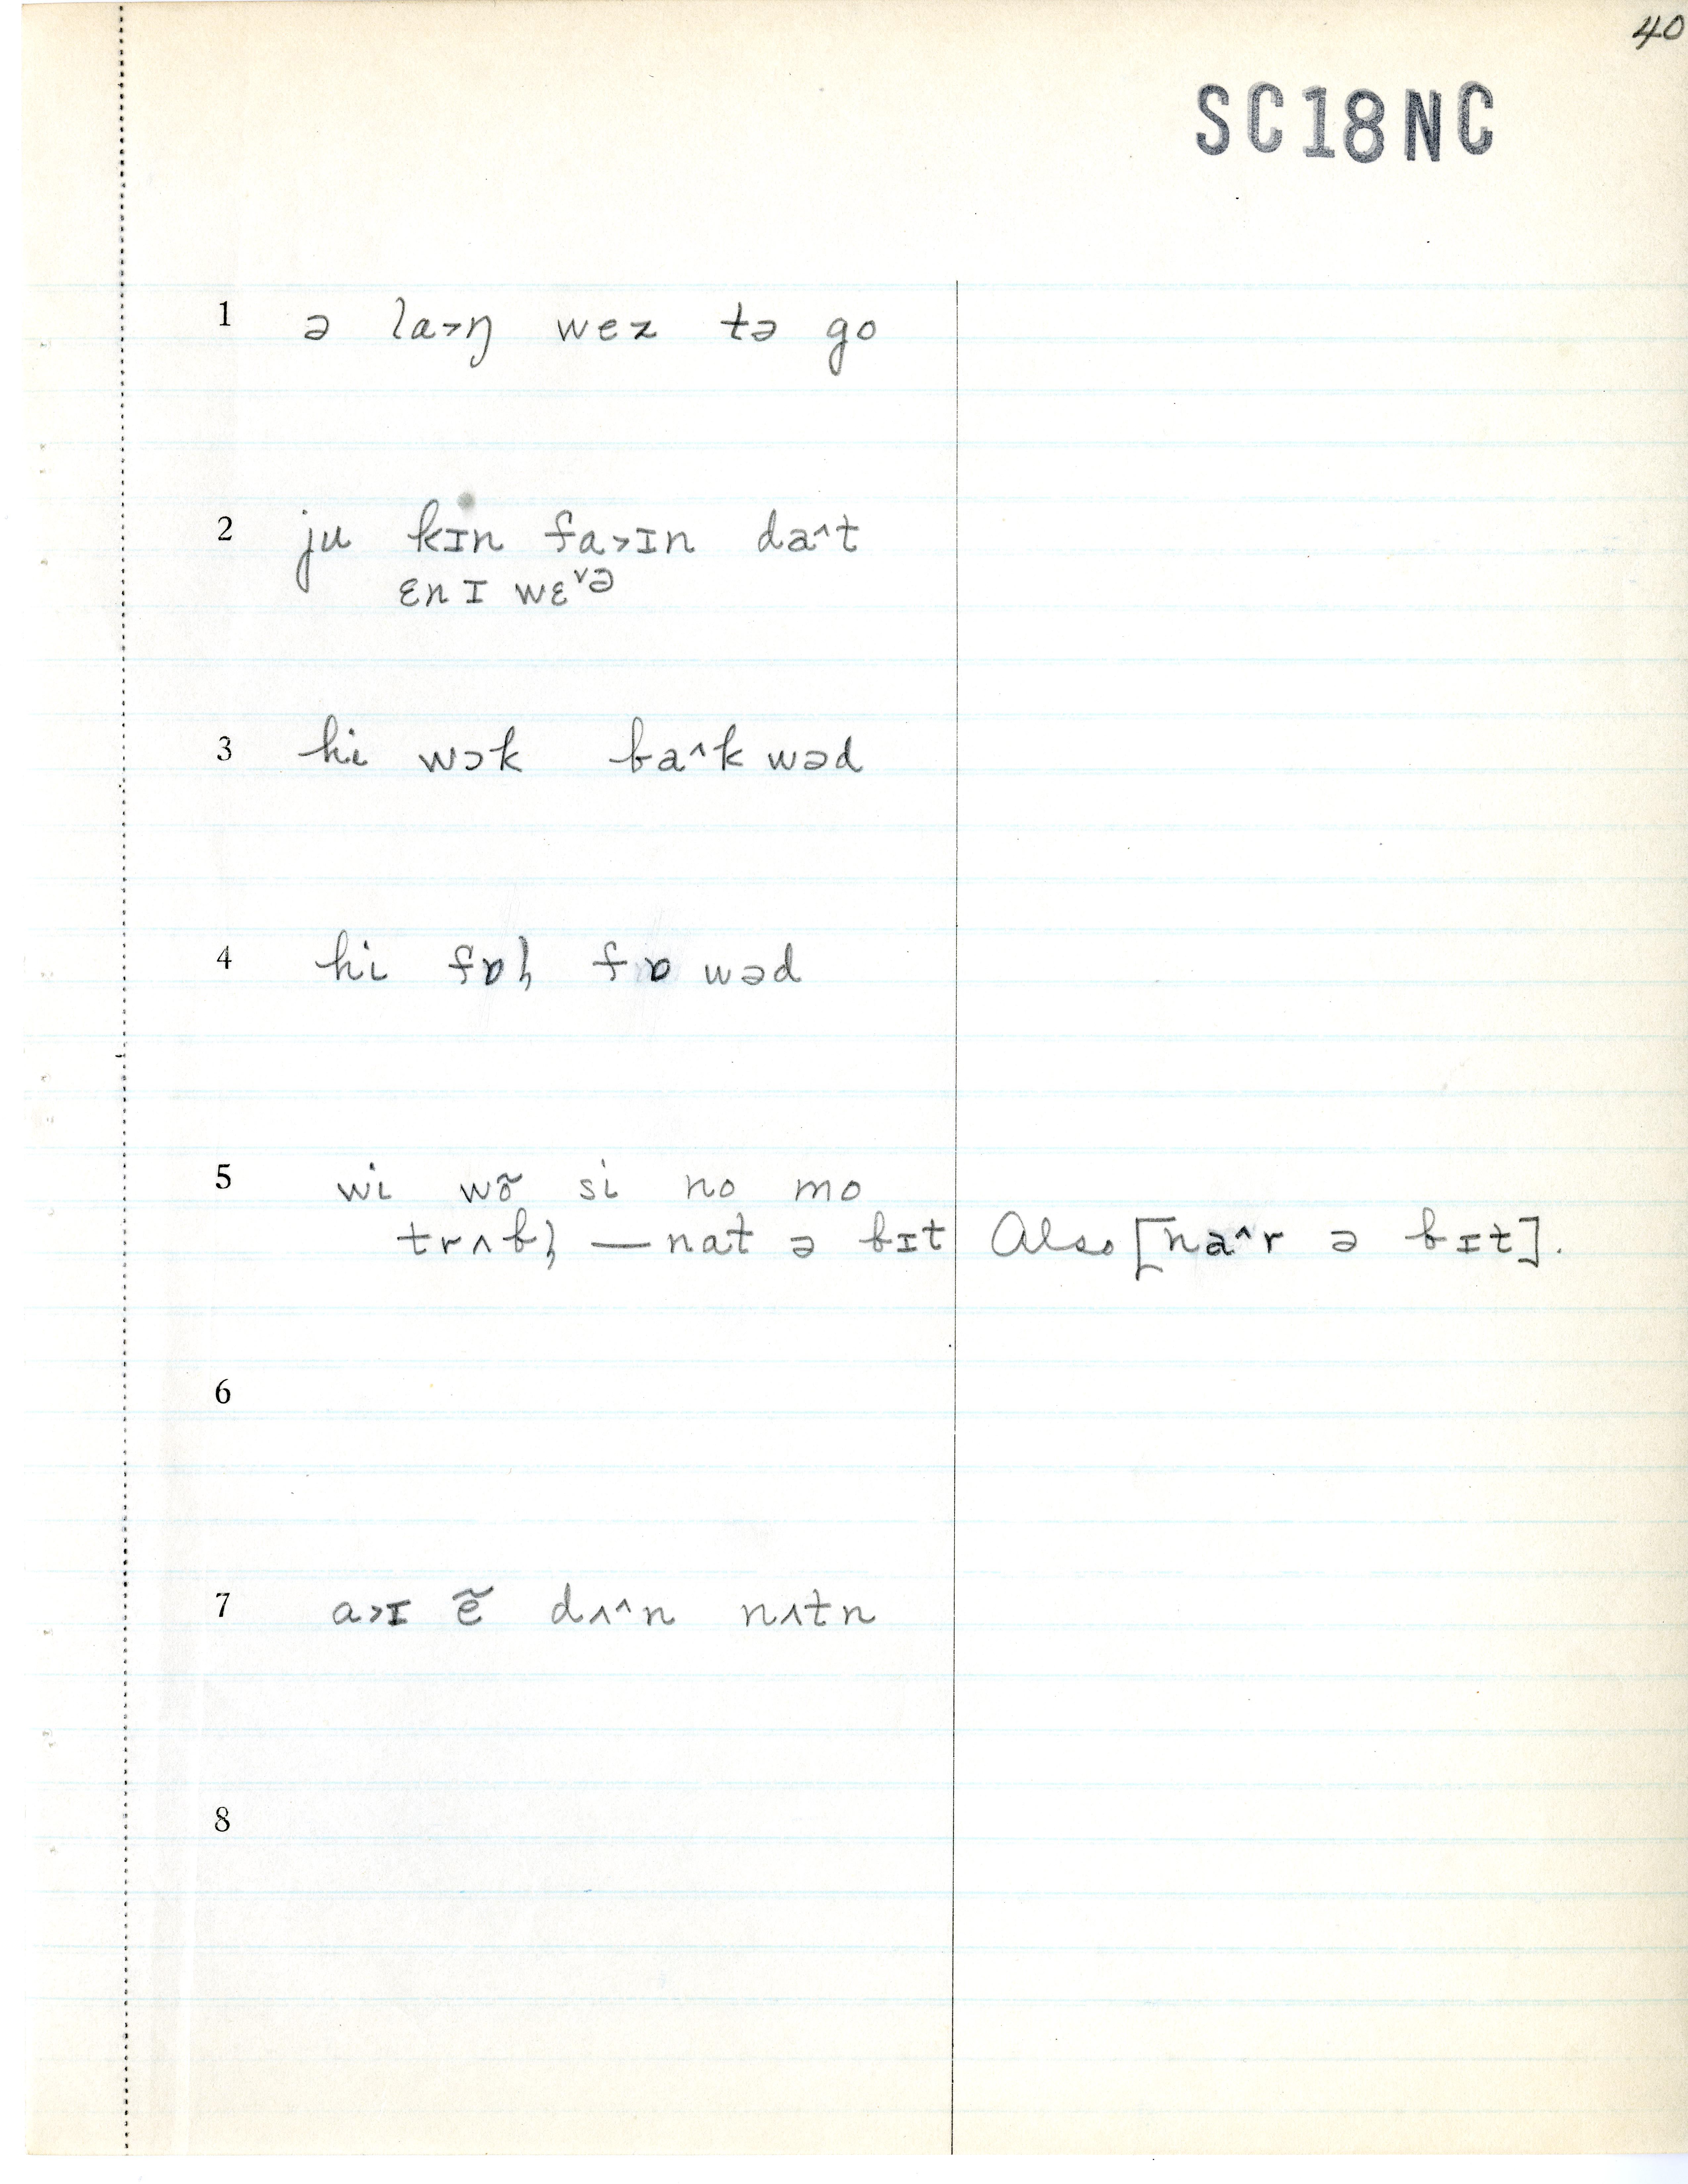 40
SC18NC
1 ə la˃ŋ wez tə go
2 ju kɪn fa˃ɪn da^t
ɛnɪ wɛ˅ə
3 hi wɔk ba^k wəd
4 hi fɒl̩ fɒ wəd
5 wi wõ si no mo
trʌbl̩ — nat ə bɪt Also [na^r ə bɪt].
6
7 a˃ɪ ẽ dʌ^n nʌtn
8